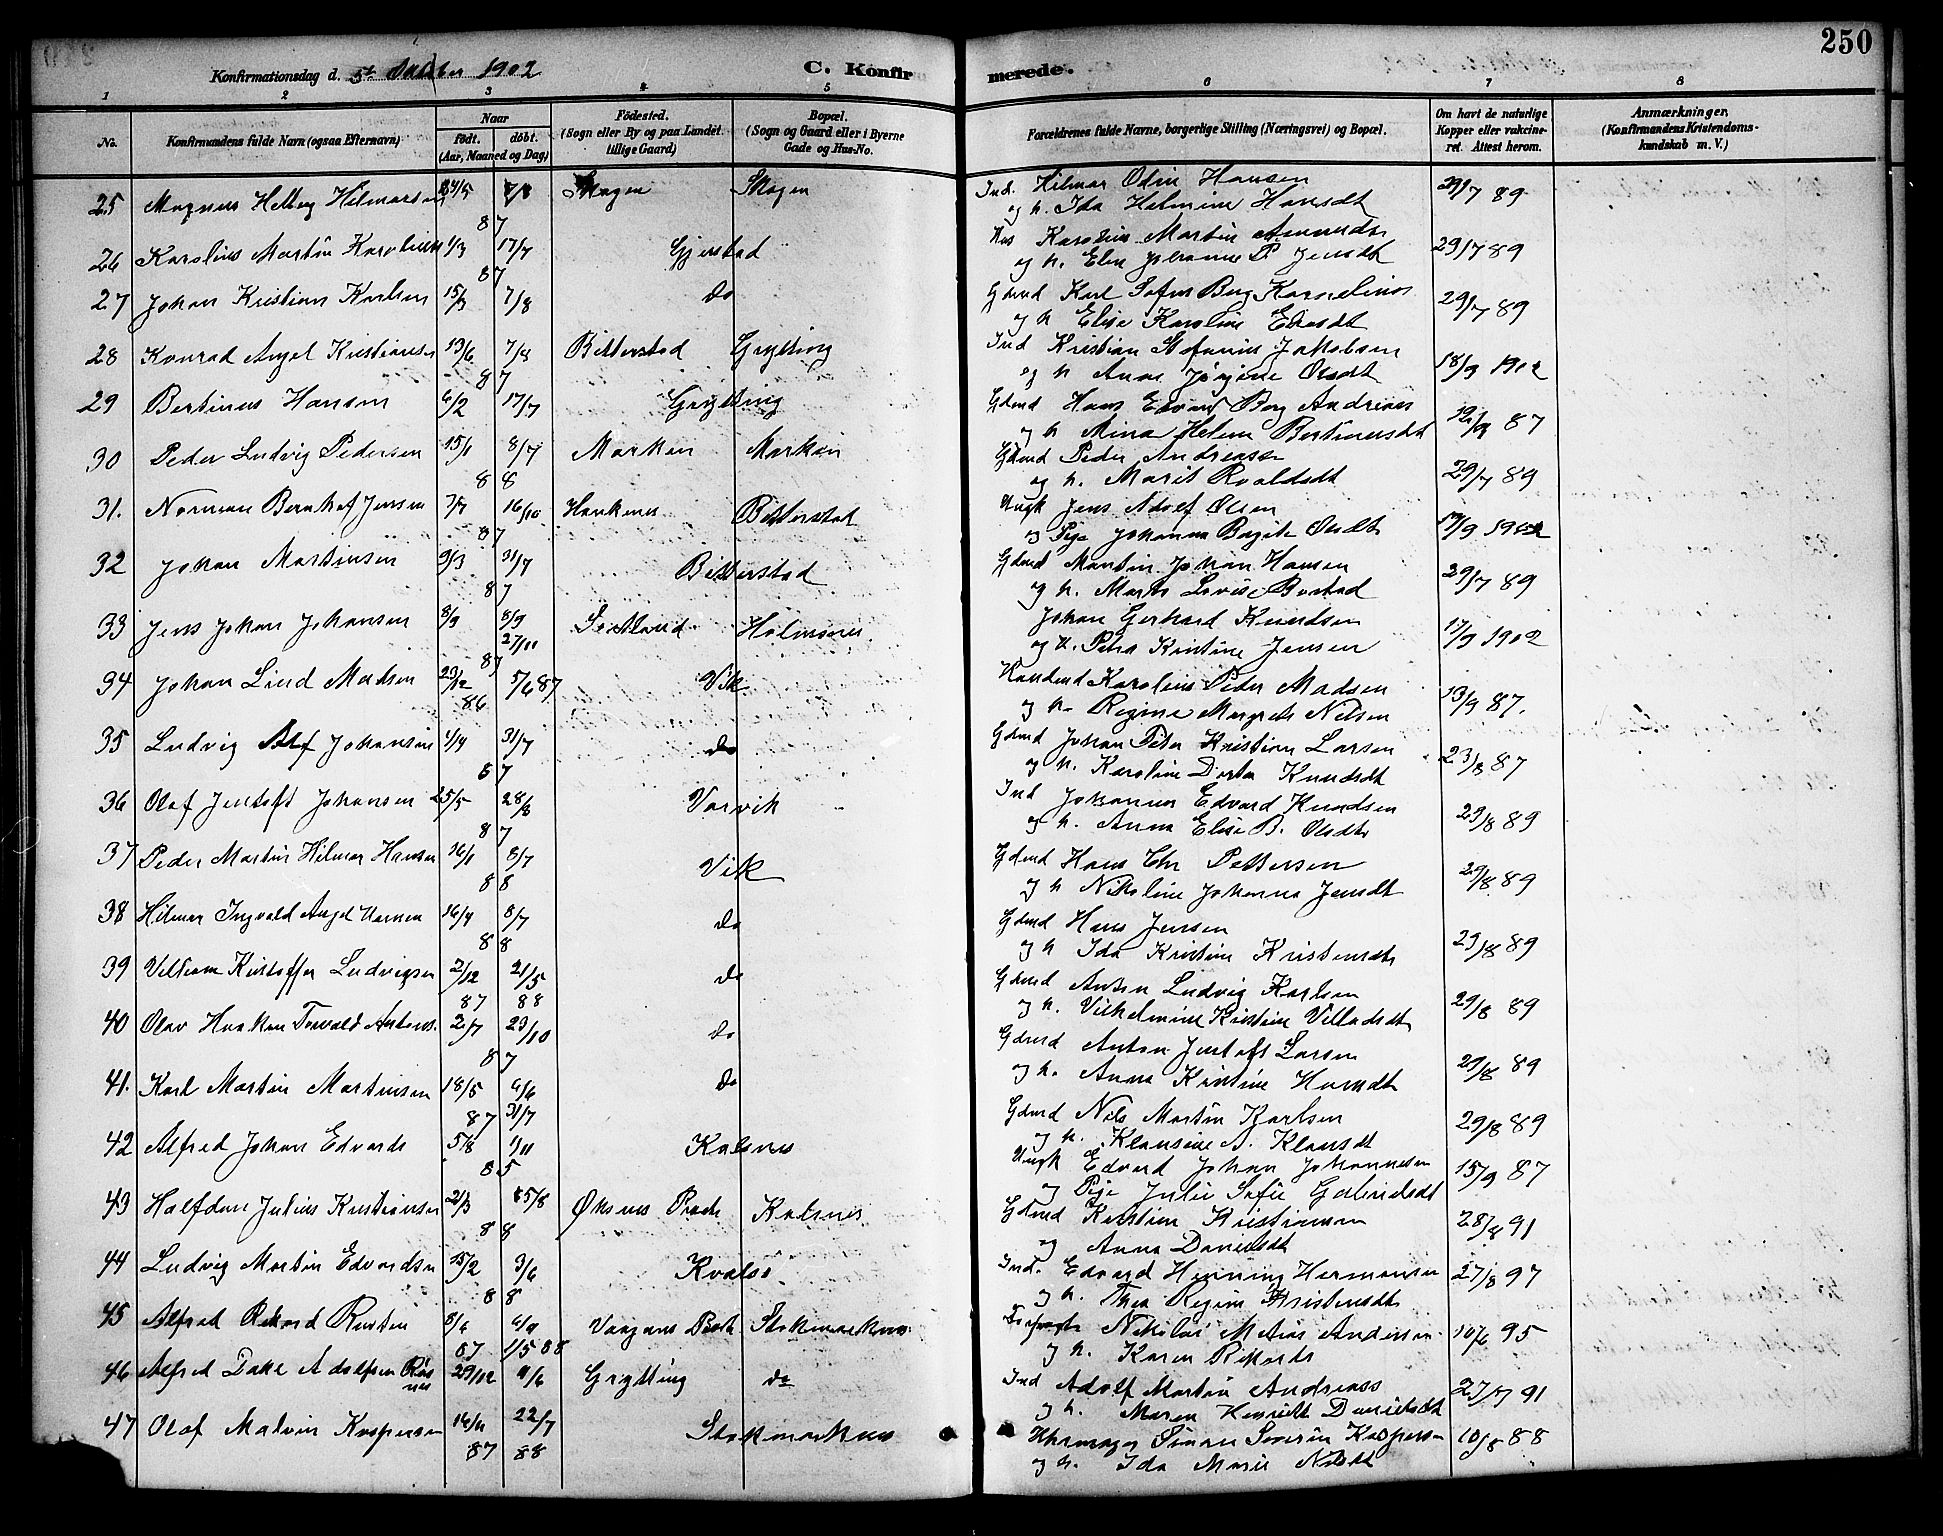 250
Konfirmationsdag d. 5te Oktober 1902
C. Konfirmerede.
1 2 3 4 5 6 7 8
No.
Konfirmandens fulde Navn (ogsaa Efternavn)
Naar
født. døbt.
(Aar, Maaned og Dag)
Fødested.
(Sogn eller By og paa Landet tillige Gaard)
Bopæl.
(Sogn og Gaard eller i Byerne Gade og Hus-No.
Forældrenes fulde Navne, borgerlige Stilling (Næringsvei) og Bopæl.
Om havt de naturlige Kopper eller vakcineret. Attest herom.
Anmærkninger.
(Konfirmandens Kristendomskundskab m. V.)
25 Magnus Helberg Hilmarsen 7/8 87 Skagen Skagen Ind. Hilmar Odin Hansen 29/7 89
og h. Ida Helmine Hansdt
26 Karolius Martin Karoliuss 1/3 17/7 87 Gjerstad Hus Karolius Martin 29/7 89
og h. Elen Johanne P. Jensdt
27 Johan Kristian Karlsen 15/3 7/8 do Gdmd Karl Sofus Berg Kornelius 29/7 89
og h Elise Karoline
28 Konrad Angel Kristiansen 13/6 7/8 87 Bitterstad Grytting Ind Kristian Stefanus Jakobsen 18/9 1902
og h Anne Jørgine Olsdt
29 Bertinus Hansen 6/2 17/7 Grytting Gdmd Hans Edvard Berg Andreas 12/9 87
og h Mina Helene Bertinusdt
30 Peder Ludvig Pedersen 15/1 8/7 88 Marken Marken Gdmd Peder Andreassen 29/7 89
og h. Marit Roaldsdt
31. Norman Bernhof Jensen 7/7 16/10 87 Haukenes Bitterstad Ungk Jens Adolf Olsen 17/9 1902
og Pige Johanna Birgite Olsdt
32 Johan Martinsen 9/3 31/7 87 Bitterstad Gdmd Martin Johan Hansen 29/7 89
og h. Marts Lovise
33 Jens Johan Johansen 8/9 8/9 27/11 87 Sortland Holmsnes Johan Gerhard Knudsen 17/9 1902
og h. Petra Kristine Jensen
34 Johan Lind Madsen 23/12 86 5/6 87 Vik Karolius Peder Madsen 13/9 87.
og h. Regine Margrete Nelsen
35 Ludvig Alf Johansen 4/4 31/7 87 do Gdmd Johan Peter Kristian Larsen 23/8 87
og h. Karoline Dorte Knudsdt
36 Olaf Jentoft Johansen 25/5 28/8 87 Vorvik Ind Johannes Edvard Knudsen 29/8 89
og h. Anna Elise B. Olsdt
37 Peder Martin Hilmar Hansen 16/1 8/7 88 Vik Gdmd Hans Chr Pettersen 29/8 89
og h Nikoline Johanna Jensdt
38 Hilmar Ingvald Angel Hansen 16/4 8/7 88 do Gdmd Hans Jensen 29/8 89
og h Ida Kristine Kristensdt
39 Villiam Kristoffer Ludvigsen 2/12 87 21/5 88 do Gdmd Anton Ludvig Karlsen 29/8 89
og h. Vilhelmine Kristine Villadsdt
40 Olav Haakon Torvald Antons. 2/7 23/10 87 do Gdmd Anton Jentoft Larsen 29/8 89
og h. Anna Kristine Hansdt
41. Karl Martin Martinsen 18/5 87 6/6 31/7 do Gdmd Nils Martin Karlsen 29/8 89
og h. Klausine A. Klausdt
42 Alfred Johan Edvards 5/8 1/11 85 Kalsnes Ungk Edvard Johan Johannesen 15/9 87
og Pige Julie Sofie Gabrielsdt
43 Halfdan Julius Kristiansen 21/3 5/8 88 Øksnes Præst. Kalsnes Gdmd Kristian Kristiansen 28/8 91
og Anna Danielsdt
44 Ludvig Martin Edvardsen 15/2 3/6 88 Kvalsø Ind. Edvard Henning Hermansen 27/8 97
og h. Thea Regine Kristensdt
45 Alfred Rikard Rusten 8/6 87 1/5 88 Vaagans Præst Stokmarknes Nikolai Matias Andersen 10/6 95
og h. Karen Rikards
46 Alfred Dahl Adolfsen Røsnes 29/12 Grytting do Ind Adolf Martin Andreass 91
og h. Maren Henriette Danielsdt
47 Olaf Malvin Kaspersen 87 22/7 88 Stokmarknes Uhrmager Simon Severin Kaspersen 10/8 88
og h. Ida Marie